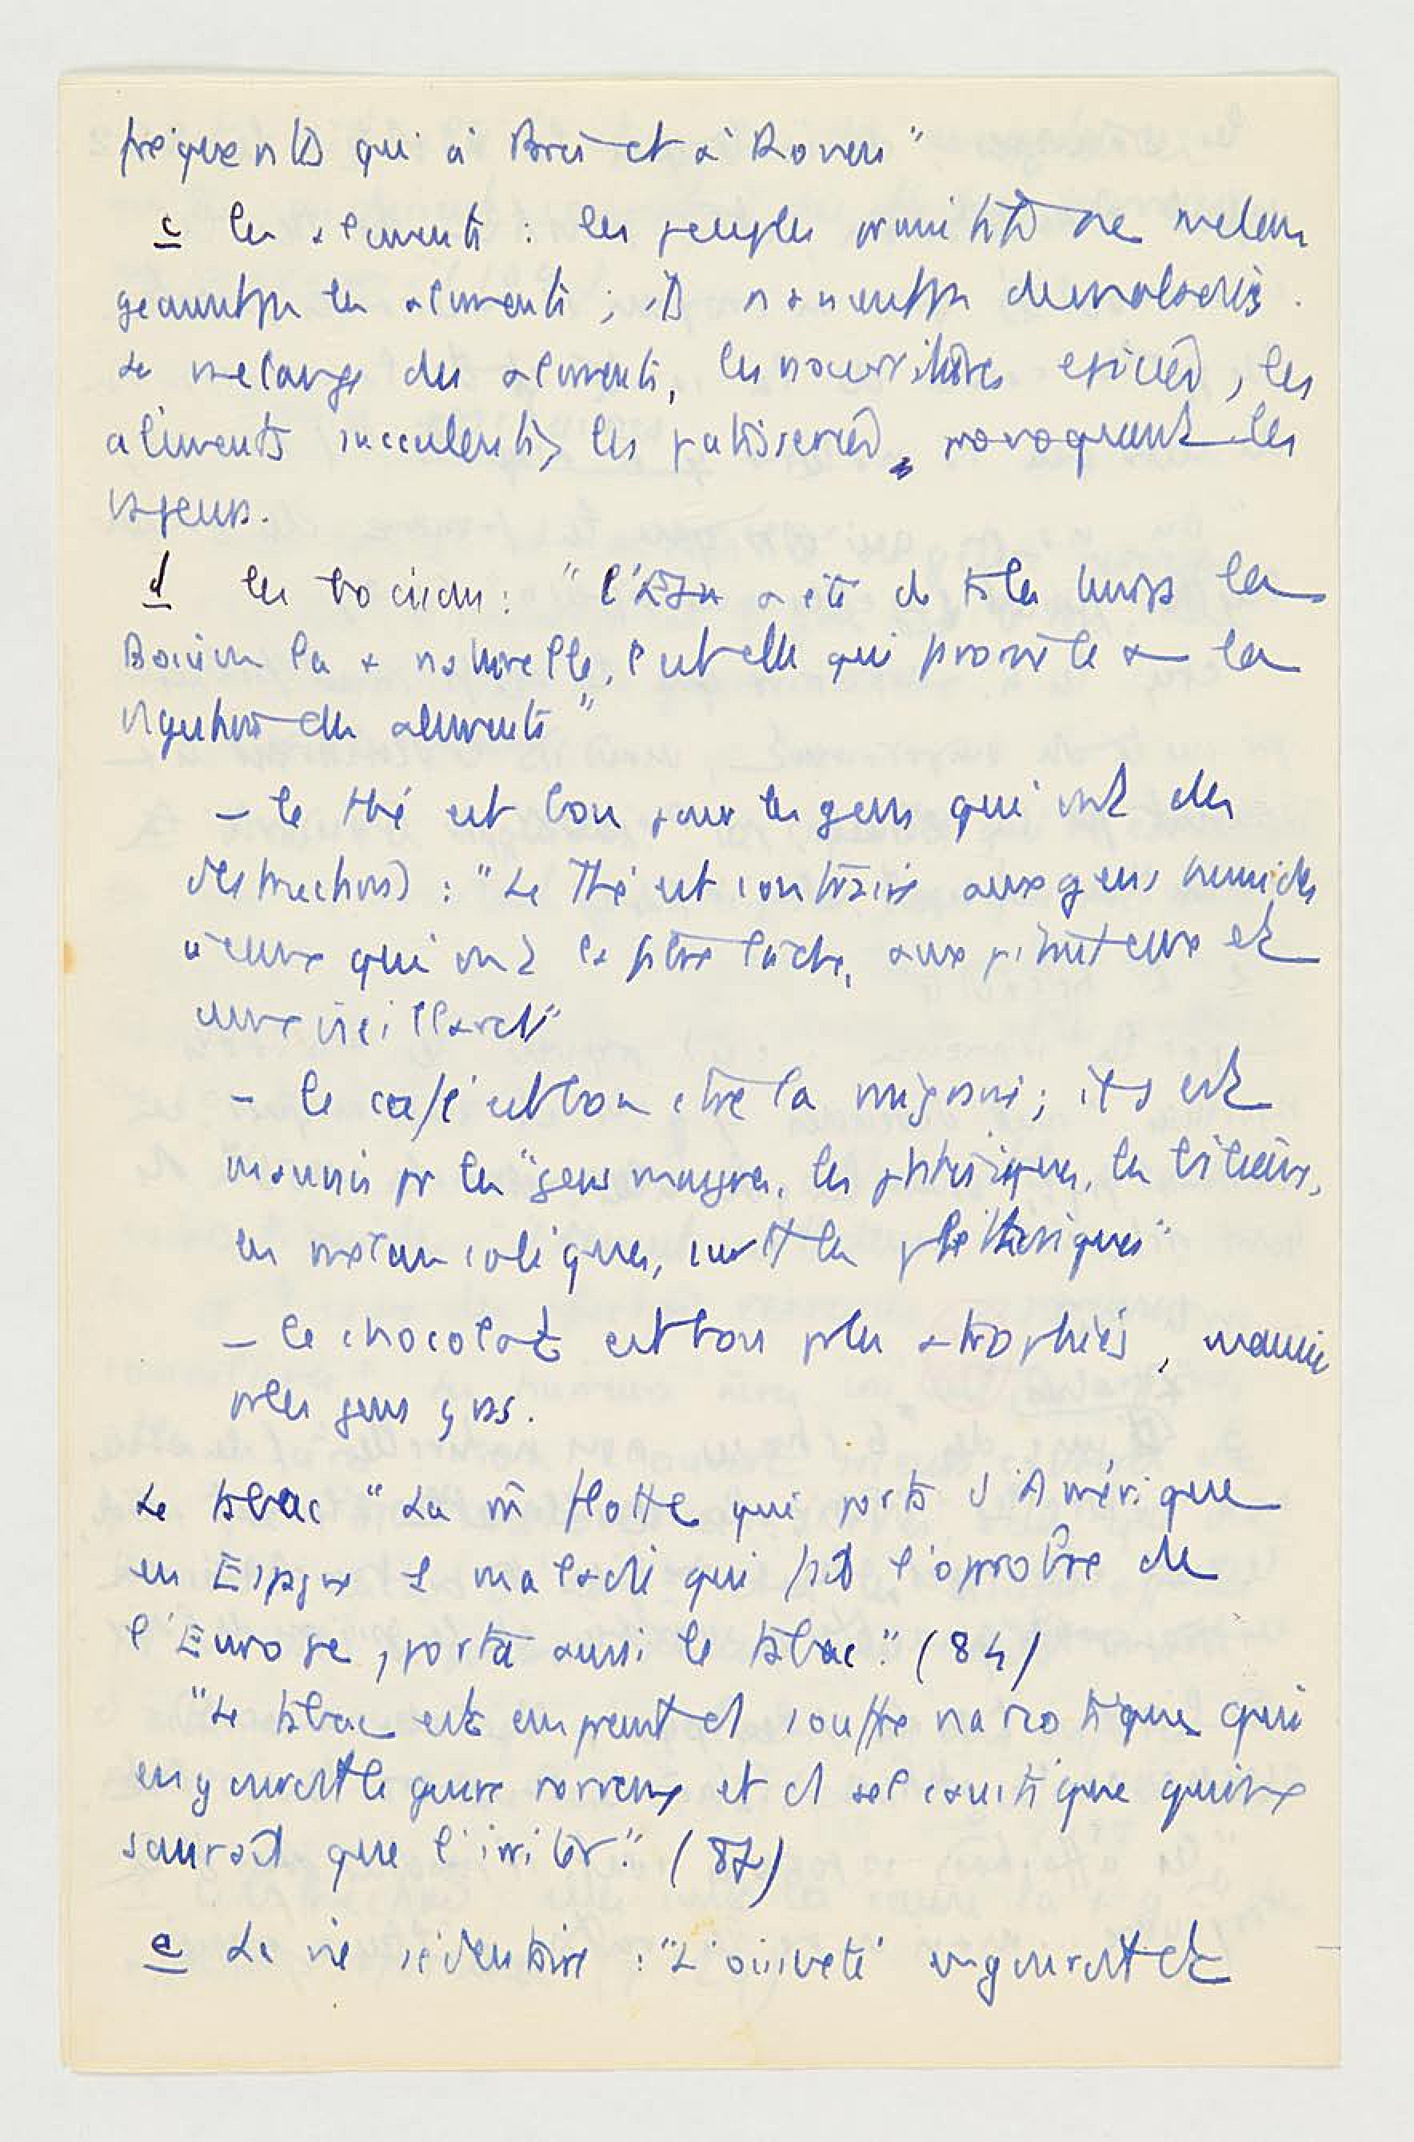 fréquents qui à Paris et à Rouen"
c les aliments : les peuples primitifs ne mélan
geaient pas les aliments ; ils n'avaient pas de maladies.
Le mélange des aliments, les nourritures épicées, les
aliments succulents, les patisseries, provoquent les
vapeurs.
d les boissons : "l'Eau a été de tt les temps la
Boisson la + naturelle, c'est elle qui procède à la
digestion des aliments"
- le thé est bon pour les gens qui ont des
: "Le Thé est contraire aux gens humides
à ceux qui ont la fibre lâche, aux pituiteux et
aux vieillards"
- le café est bon ctre la migraine ; il est
mauvais pr les "gens maigres, les phtisiques, les bilieux,
les mélancoliques, surtt les pléthoriques"
- le chocolat est bon pr les atrophiés, mauvais
pr les gens gras.
Le tabac "La m̂ flotte qui porta d'Amérique
en Espagne la maladie qui fait l'oprobre de
l'Europe, porta aussi le tabac." (84)
"Le tabac est empreint d'1 souffre narcotique qui
engourdit le genre nerveux et d'1 sel caustique qui ne
saurait que l'irriter." (87)
e La vie sédentaire : "L'oisiveté engourdit et